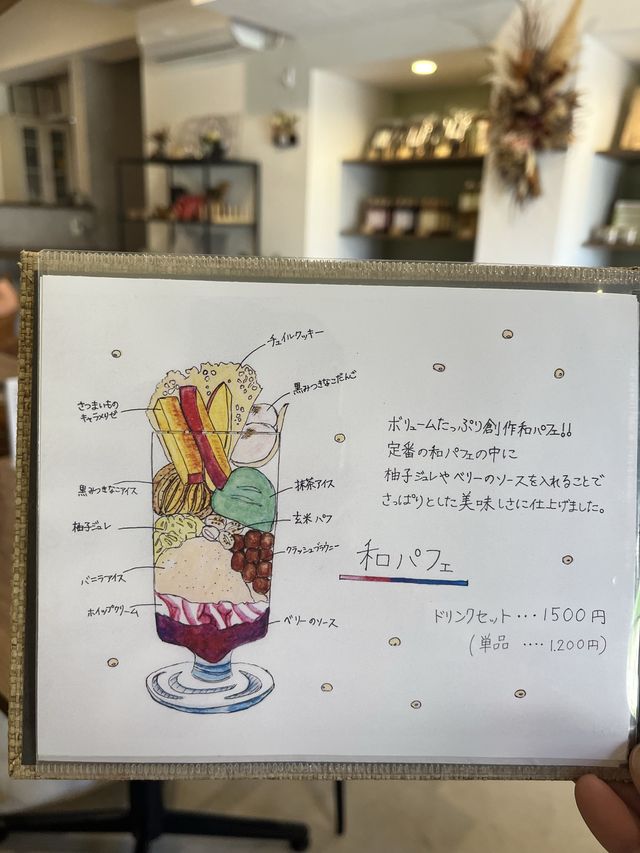 チュイルクッキー
黒みつきなこだんご
さつまいもの
キャラメリゼ
黒みつきなこアイス
抹茶アイス
柚子ジュレ
玄米パフ
クラッシュブラウニー
バニラアイス
ホイップクリーム
ベリーのソース
ボリュームたっぷり創作和パフェ!!
定番の和パフェの中に
柚子ジュレやベリーのソースを入れることで
さっぱりとした美味しさに仕上げました。
和パフェ
ドリンクセット・・・1500円
(単品 ‥‥1.200円)